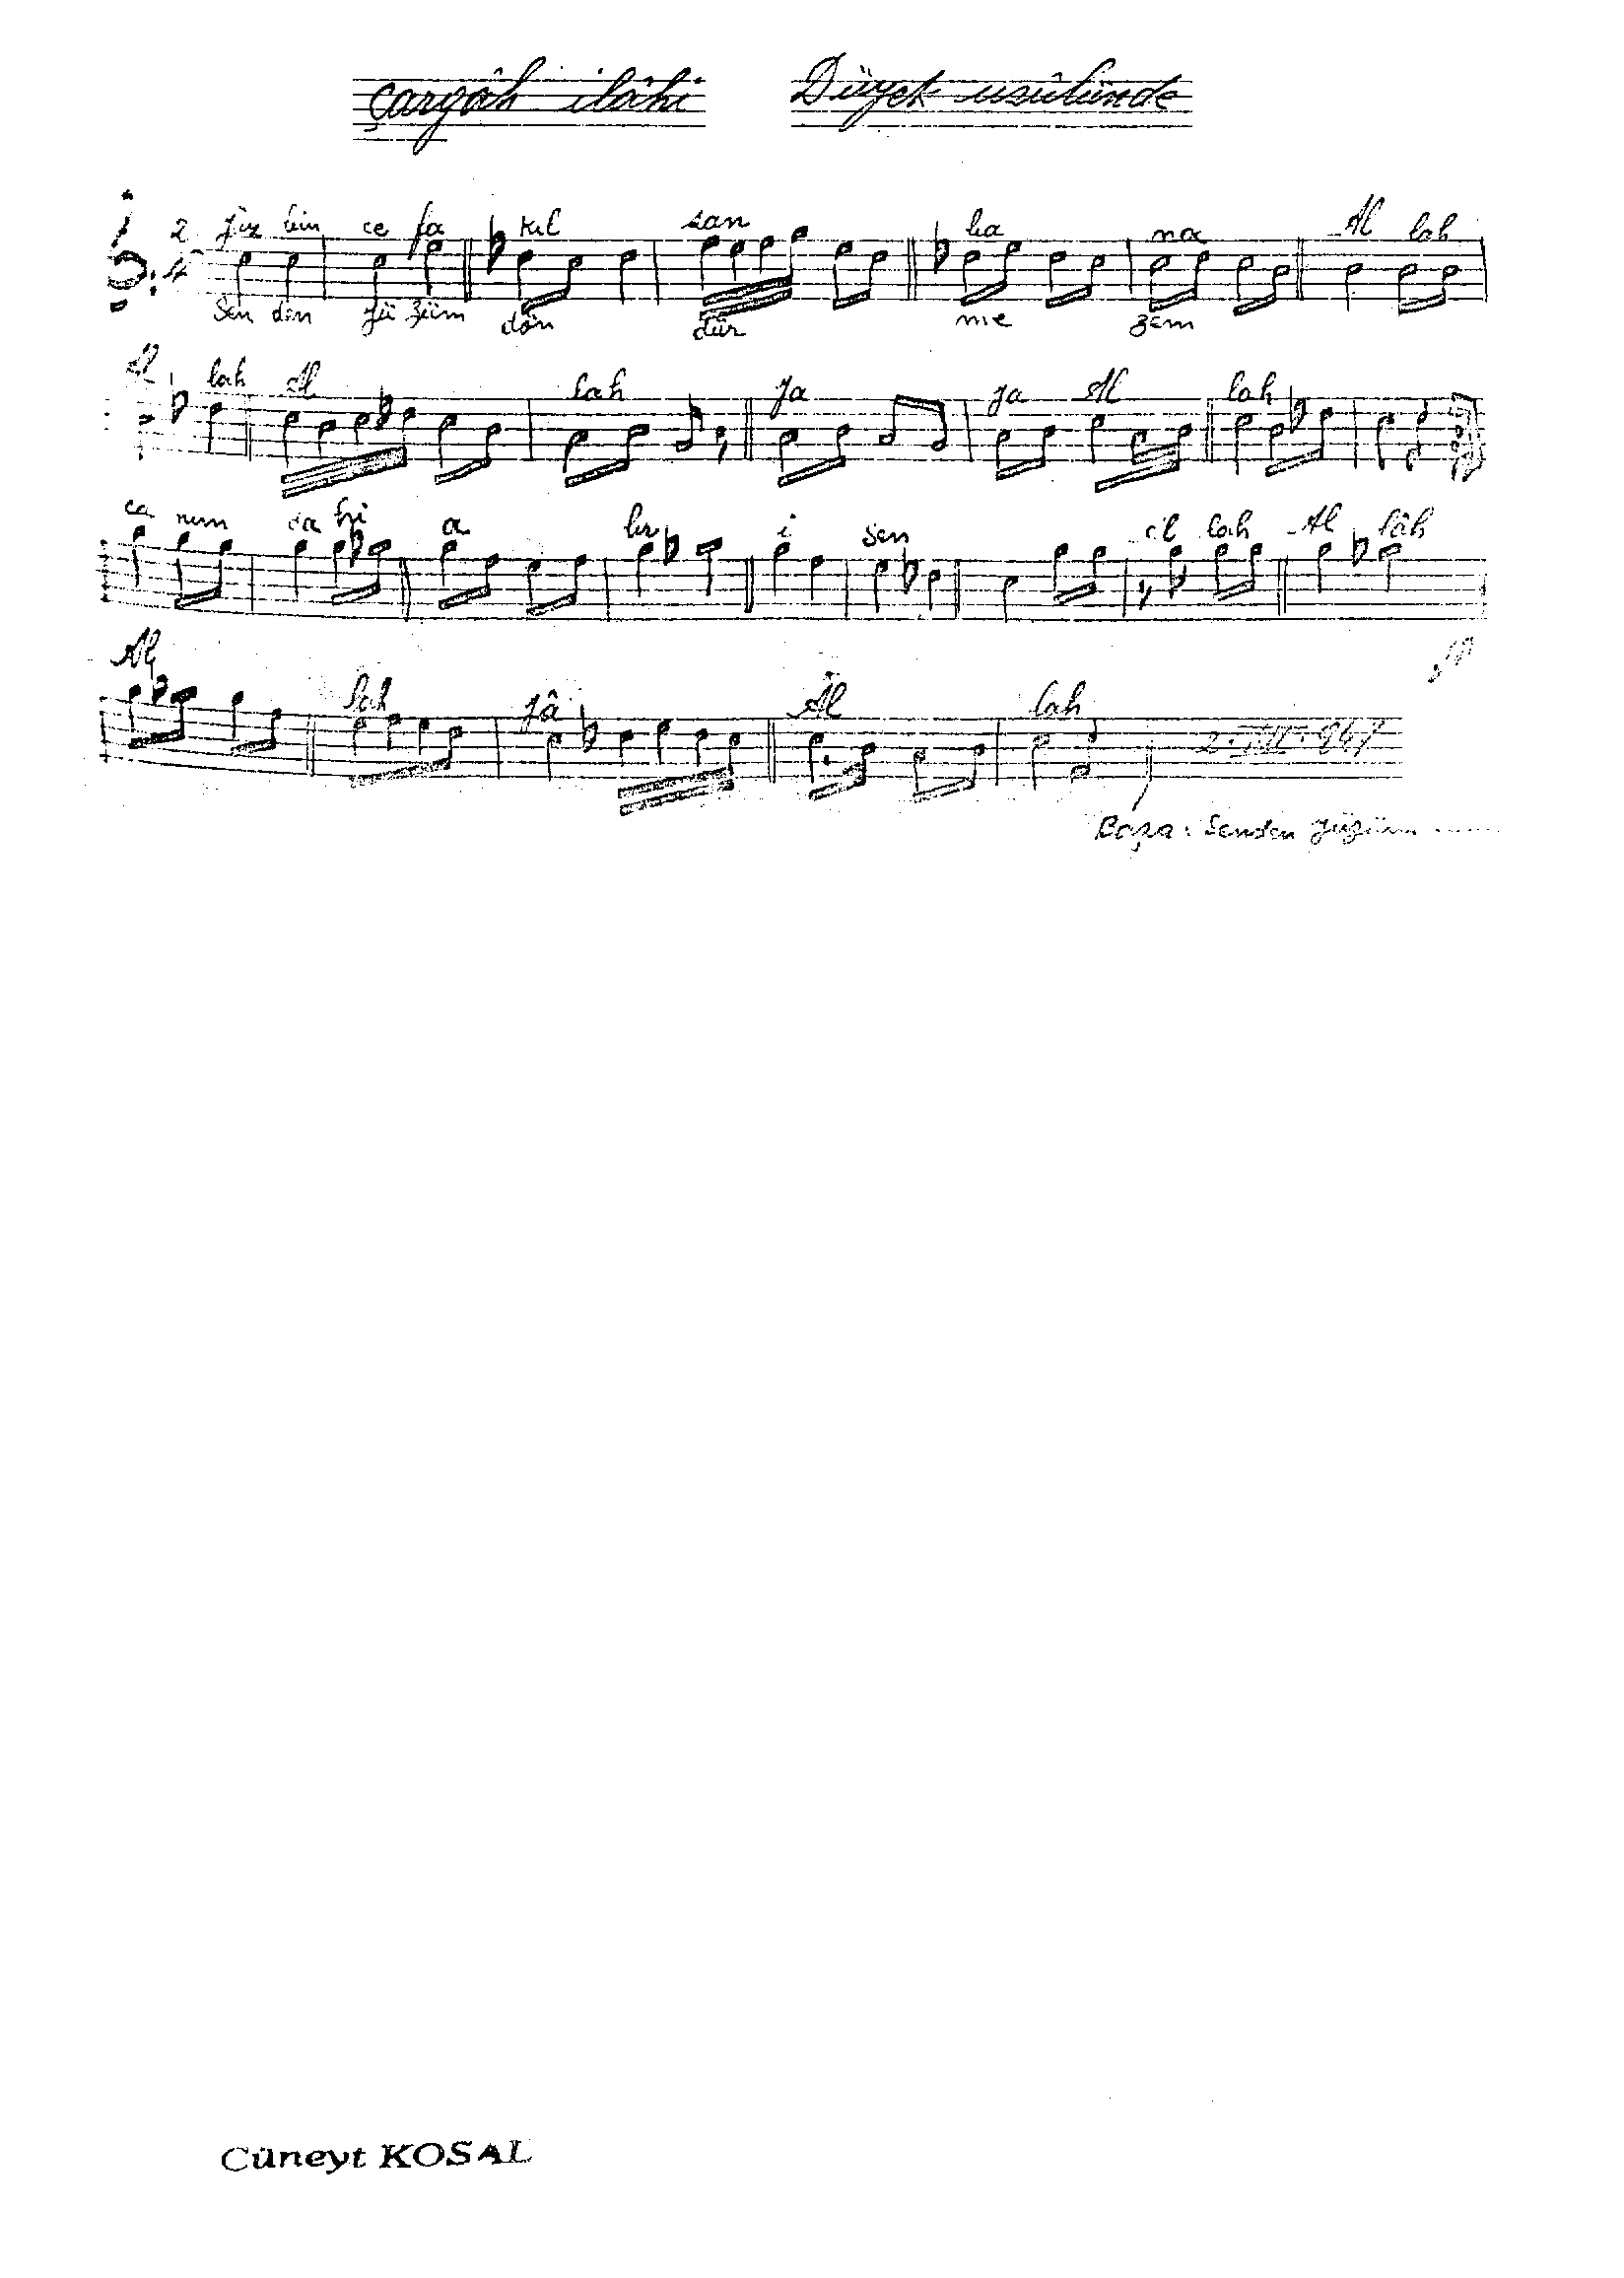 Çargâh ilâhi Düyek usûlünde
2 Yüz bin ce fa kıl san ba na Al lah
4 Sen den yü züm dön dür me zem
Al lah Al lah Ya Ya Al lah
ca nım a lır i sen Al lah Al lâh
Al lah Yâ Al lah
Başa: Senden yüzüm ......
Cüneyt KOSAL